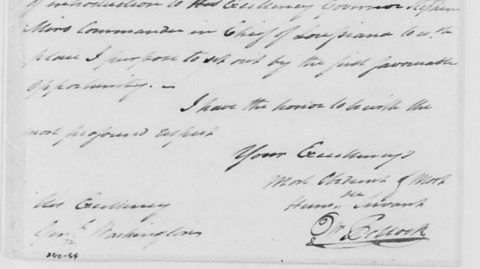 of introduction to His Excellency Governor
Miro Commander in Chief of Louisiana to wch
place I purpose to set out by the first favourable
opportunity. —
I have the honor to be with the
most profound respect
Your Excellency's
Most Obedient & Most
Humb Servant
Pollock
His Excellency
Genl Washington
240-55